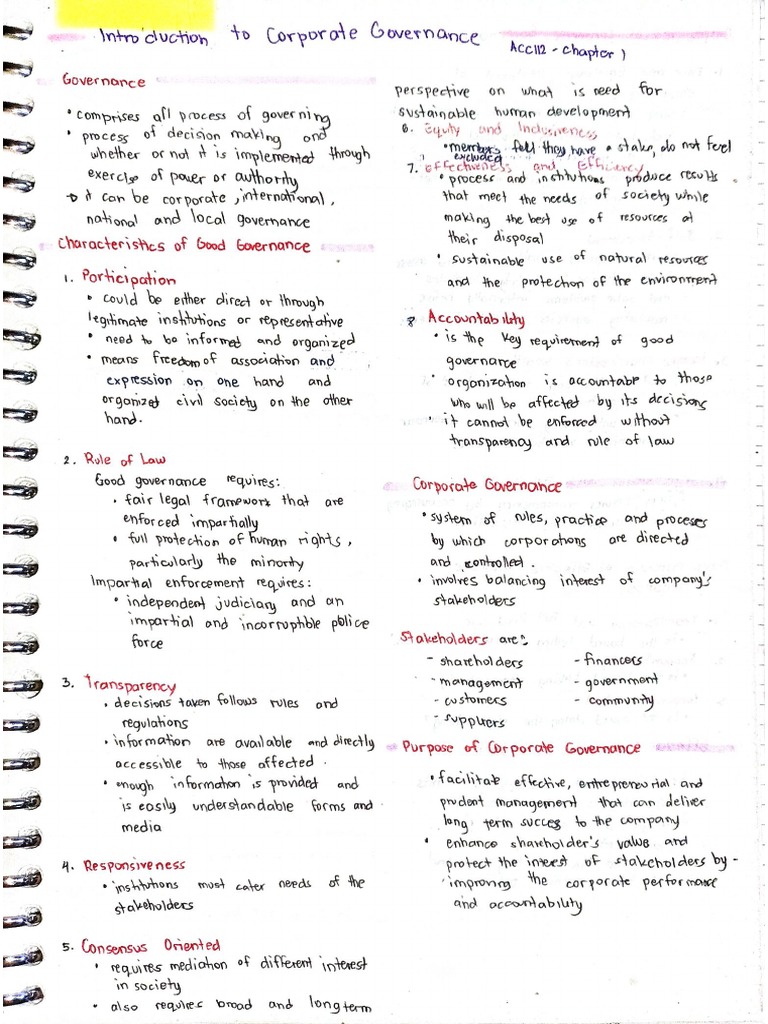 Introduction to Corporate Governance
ACC112 - Chapter 1
Governance
• comprises all process of governing
• process of decision making and
whether or not it is implemented through
exercise of power or authority
→ it can be corporate, international,
national and local governance
Characteristics of Good Governance
1. Participation
• could be either direct or through
legitimate institutions or representative
• need to be informed and organized
• means freedom of association and
expression on one hand and
organized civil society on the other
hand.
2. Rule of Law
Good governance requires:
• fair legal framework that are
enforced impartially
• full protection of human rights,
particularly the minority
Impartial enforcement requires:
• independent judiciary and an
impartial and incorruptible police
force
3. Transparency
• decisions taken follows rules and
regulations
• information are available and directly
accessible to those affected.
• enough information is provided and
is easily understandable forms and
media
4. Responsiveness
• institutions must cater needs of the
stakeholders
5. Consensus Oriented
• requires mediation of different interest
in society
• also requires broad and long term
perspective on what is need for
sustainable human development
6. Equity and Inclusiveness
• members felt they have a stake, do not feel
excluded
7. Effectiveness and Efficiency
• process and institutions produce results
that meet the needs of society while
making the best use of resources at
their disposal
• sustainable use of natural resources
and the protection of the environment
8 Accountability
• is the key requirement of good
governance
• organization is accountable to those
who will be affected by its decisions
• it cannot be enforced without
transparency and rule of law
Corporate Governance
• system of rules, practice and processes
by which corporations are directed
and controlled.
• involves balancing interest of company's
stakeholders
Stakeholders are:
- shareholders
- management
- customers
- suppliers
- financers
- government
- community
Purpose of Corporate Governance
• facilitate effective, entrepreneurial and
prudent management that can deliver
long term success to the company
• enhance shareholder's value and
protect the interest of stakeholders by -
improving the corporate performance
and accountability